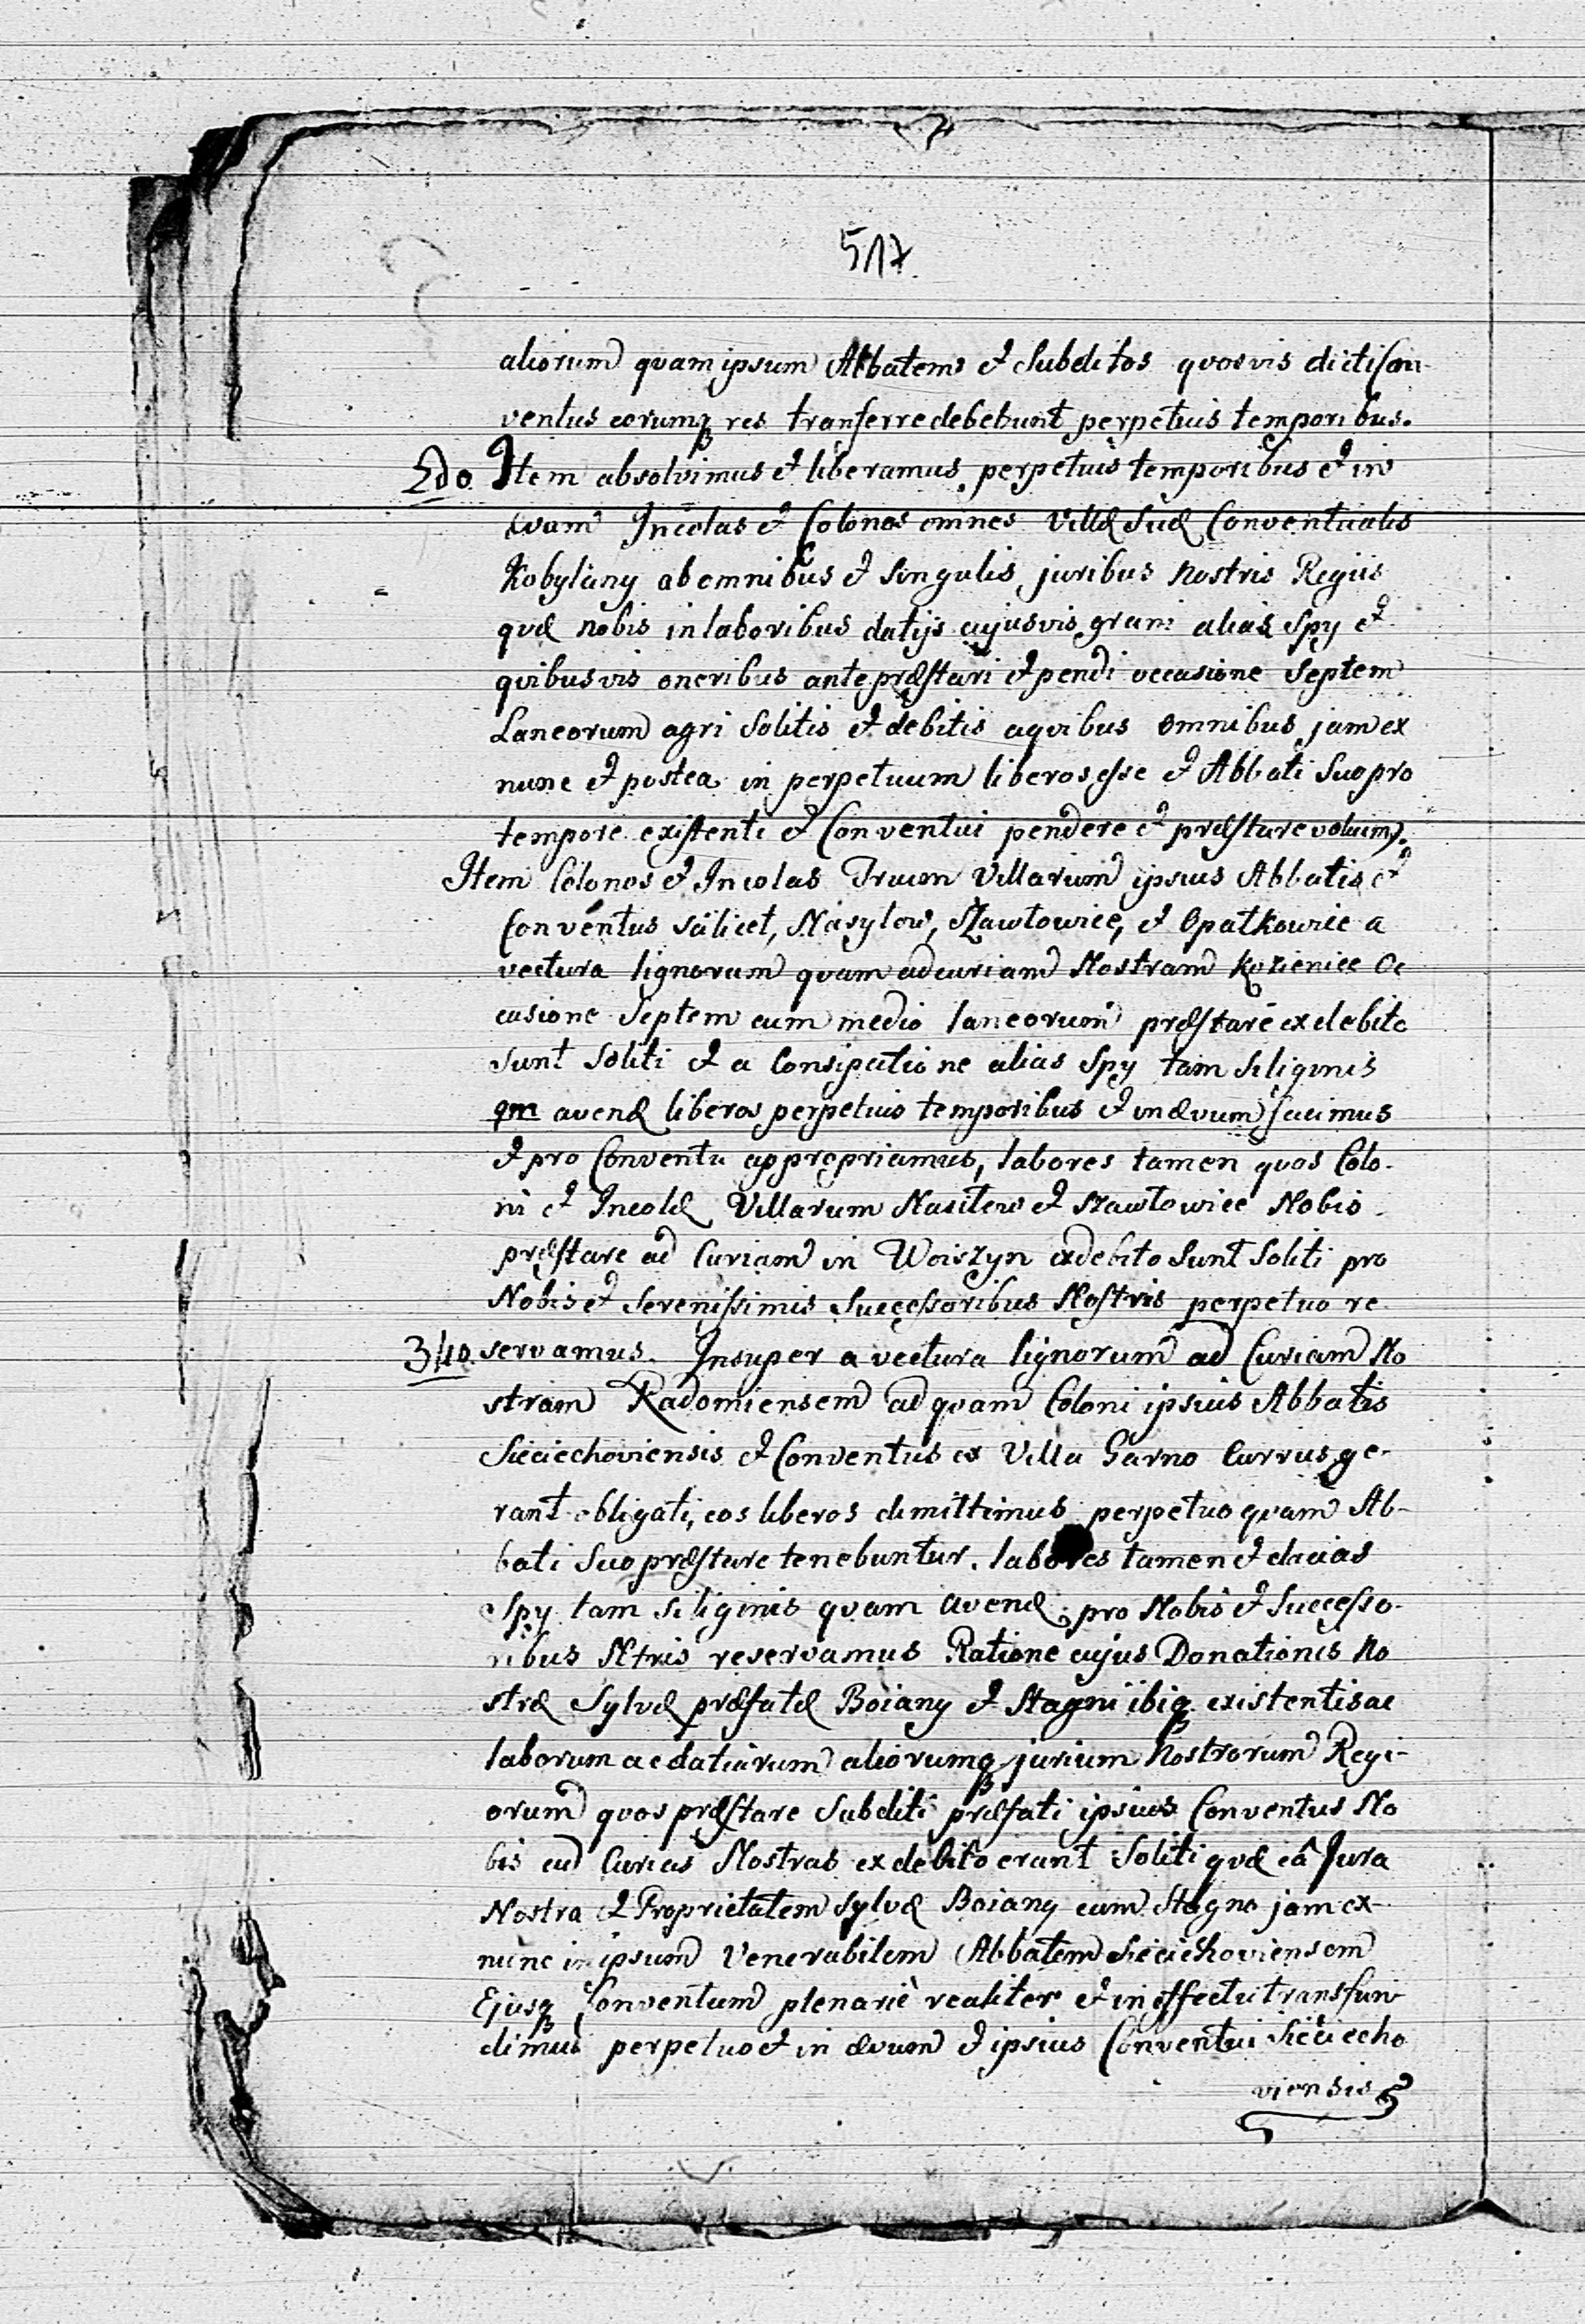 517
aliorum quam ipsum Abbatem et Subditos quosvis dicti Con-
ventus eorumq res tranferre debebunt perpetuis temporibus.
2do Item absolvimus et liberamus perpetuis temporibus et in
ævum Incolas et Colonos omnes Villæ Suæ Conventualis
Kobylany ab omnibus et singulis juribus Nostris Regiis
quæ nobis in laboribus datijs cujusvis grani alias Spy et
quibusvis oneribus ante præstari et pendi occasione Septem
Laneorum agri Solitis et debitis a qvibus omnibus jam ex
nunc et postea in perpetuum liberos esse et Abbati Suo pro
tempore existenti et Conventui pendere et præstare volum9.
Item Colonos et Incolas Trium Villarum ipsius Abbatis et
Conventus scilicet, Nasylow, Szawłowice, et Opatkowice a
vectura lignorum quam ad curiam Nostram Kozienice Oc
casione Septem cum medio laneorum præstare ex debito
sunt Soliti et a Consipatione alias Spy tam Siliginis
qm avenæ liberos perpetuis temporibus et in ævum facimus
et pro Conventu appropriamus, labores tamen quos Colo-
ni et Incolæ Villarum Nasilew et Szawłowice Nobis
præstare ad Curiam in Woiszyn ex debito Sunt Soliti pro
Nobis et Serenissimis Successoribus Nostris perpetuo re
3tio. servamus. Insuper a vectura lignorum ad Curiam No
stram Radomiensem ad quam Coloni ipsius Abbatis
Sieciechoviensis et Conventus ex Villa Garno Currus ge-
rant obligati, eos liberos dimittimus perpetuo quam Ab-
bati Suo præstare tenebuntur. labores tamen et dacias
Spy tam Siliginis quam avenæ pro Nobis et Successo-
ribus Ntris reservamus Ratione cujus Donationis No
stræ Sylvæ præfatæ Boiany et Stagni ibiq existentis ac
laborum ac datiarum aliorumq jurium Nostrorum Regi-
orum quos præstare Subditi præfati ipsius Conventus No
bis ad Curias Nostras ex debito erant Soliti quæ eâ Jura
Nostra et Proprietatem Sylvæ Boiany cum Stagno jam ex-
nunc in ipsum Venerabilem Abbatem Sieciechoviensem
Ejusq Conventum plenariè realiter et in effectu transfun
dimus perpetuo et in ævum et ipsius Conventui Sieciecho
viensis